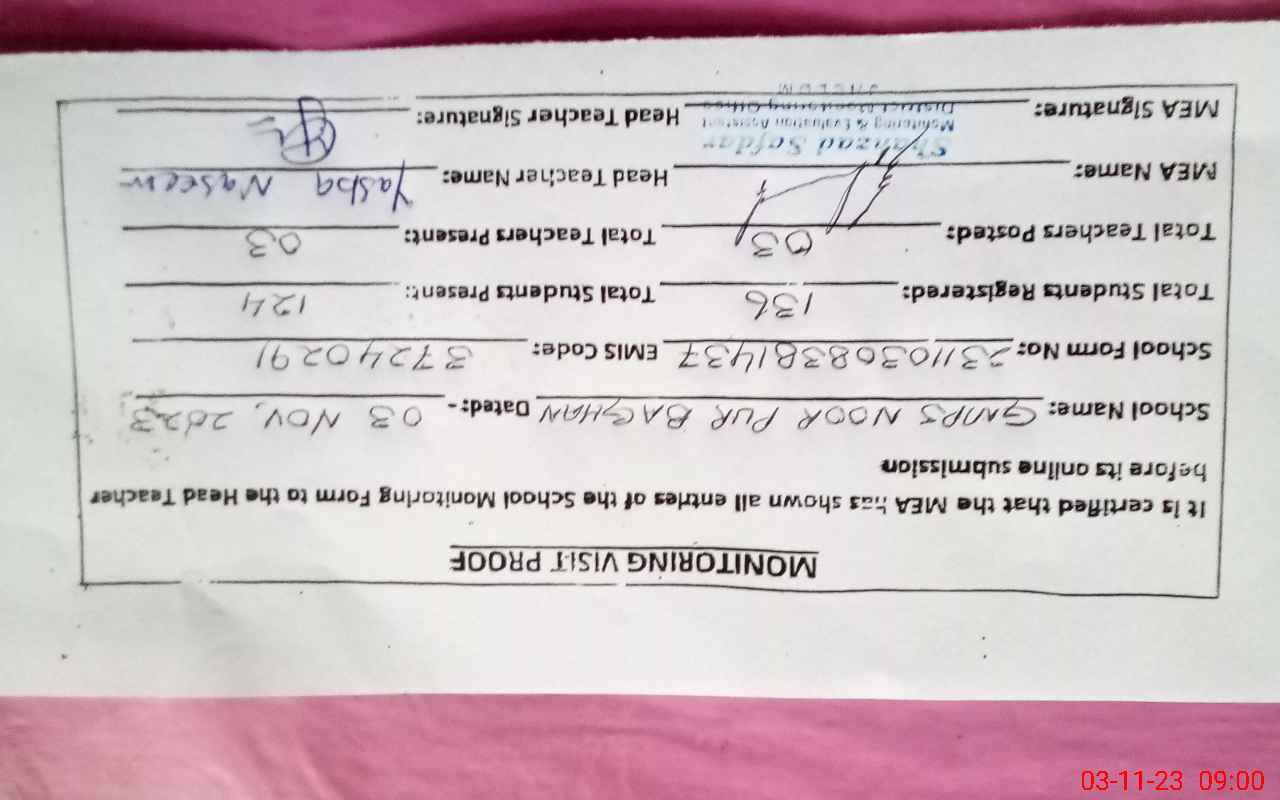 MONITORING VISIT PROOF
It is certified that the MEA has shown all entries of the School Monitoring Form to the Head Teacher
before its online submission
School Name: GMPS NOOR PUR BAGHAN Dated:- 03 NOV, 2023
School Form No: 23110308381437 EMIS Code: 37240291
Total Students Registered: 136 Total Students Present: 124
Total Teachers Posted: 03 Total Teachers Present: 03
MEA Name: Head Teacher Name: Yasba Naseem
Shahzad Safdar
Monitoring & Evaluation Assistant
District Monitoring Office
JHELUM
MEA Signature: Head Teacher Signature:
03-11-23 09:00